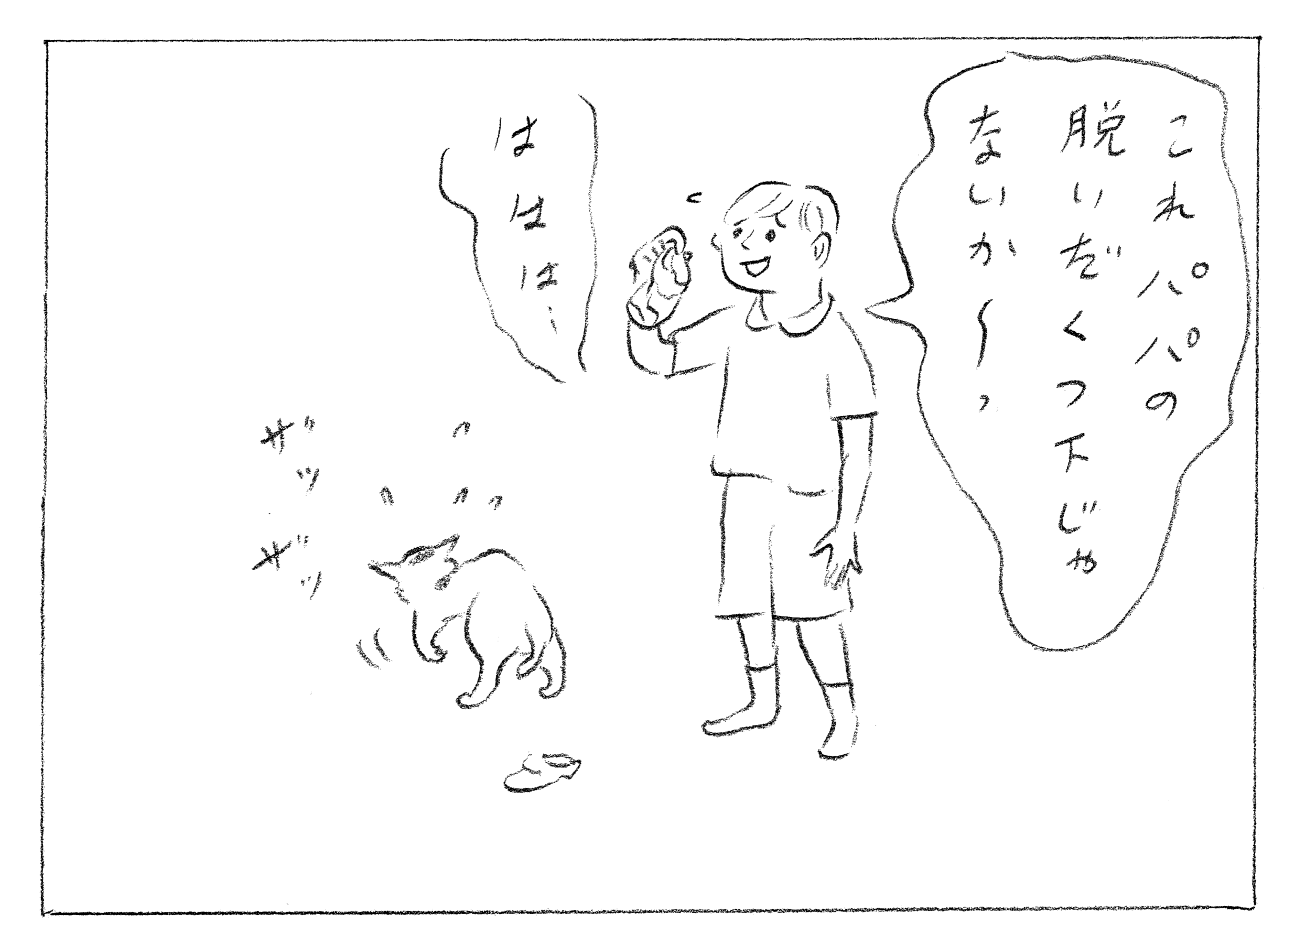 これパパの
脱いだくつ下じゃ
ないか〜っ
ははは…
ザッ
ザッ